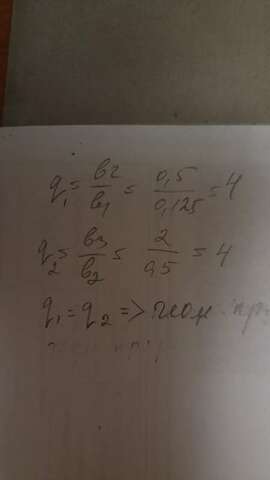 q₁ = b2/b1 = 0,5/0,125 = 4
q₂ = b3/b2 = 2/0,5 = 4
q₁ = q₂ => геом. пр